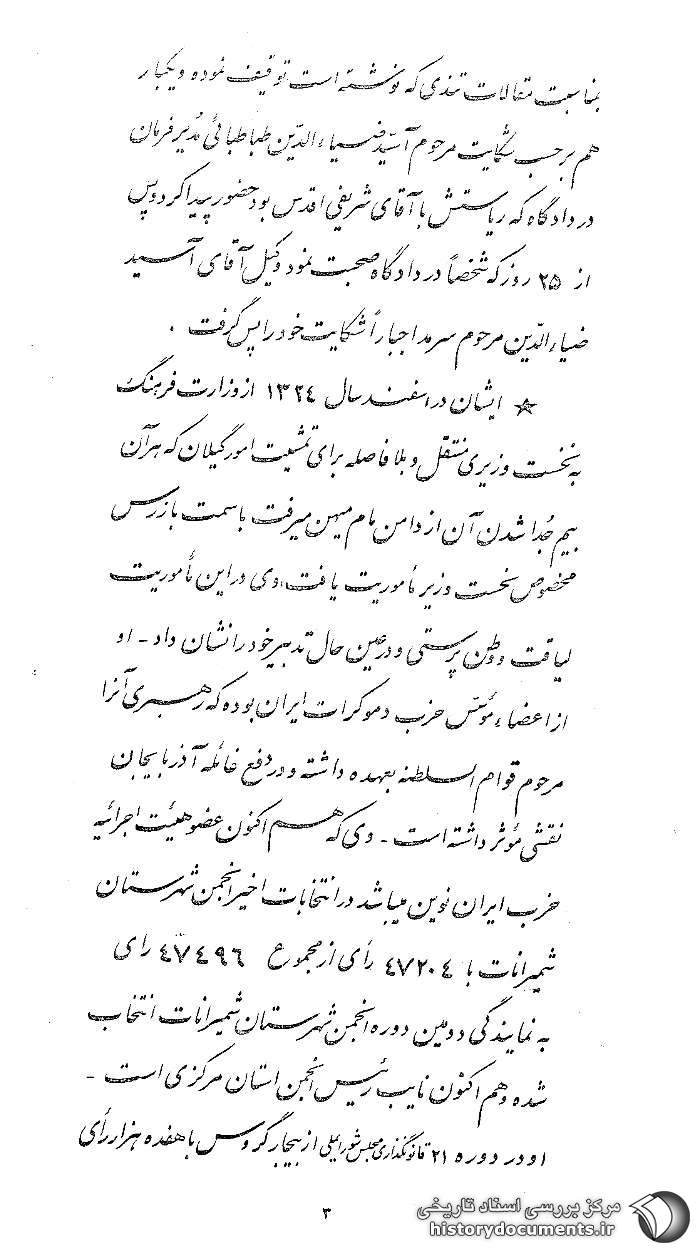 بمناسبت مقالات تندی که نوشته است توقیف نموده و یکبار
هم برحسب شکایت مرحوم آسید ضیاءالدین طباطبائی مُدیر فرمان
در دادگاه که ریاستش با آقای شریفی اقدس بود حضور پیدا کرد و پس
از ۲۵ روز که شخصاً در دادگاه صحبت نمود وکیل آقای آسید
ضیاءالدین مرحوم سرمد اجباراً شکایت خود را پس گرفت .
☆ ایشان در اسفند سال ۱۳۲٤ از وزارت فرهنگ
به نخست وزیری منتقل و بلافاصله برای تمشیت امور گیلان که هر آن
بیم جُدا شدن آن از دامن مام میهن میرفت با سمت بازرس
مخصوص نخست وزیر مأموریت یافت، وی در این مأموریت
لیاقت و وطن پرستی و در عین حال تدبیر خود را نشان داد - او
از اعضاء مؤسّس حزب دموکرات ایران بوده که رهبری آنرا
مرحوم قوام السلطنه بعهده داشته و در دفع غائله آذربایجان
نقشی مؤثر داشته است - وی که هم اکنون عضو هیئت اجرائیه
حزب ایران نوین میباشد در انتخابات اخیر انجمن شهرستان
شمیرانات با ٤۷۲۰٤ رأی از مجموع ٤۷٤۹۶ رای
به نمایندگی دومین دوره انجمن شهرستان شمیرانات انتخاب
شده و هم اکنون نایب رئیس انجمن استان مرکزی است -
او در دوره ۲۱ قانونگذاری مجلس شورایملی از بیجار گروس با هفده هزار رأی
۳
مرکز بررسی اسناد تاریخی
historydocuments.ir